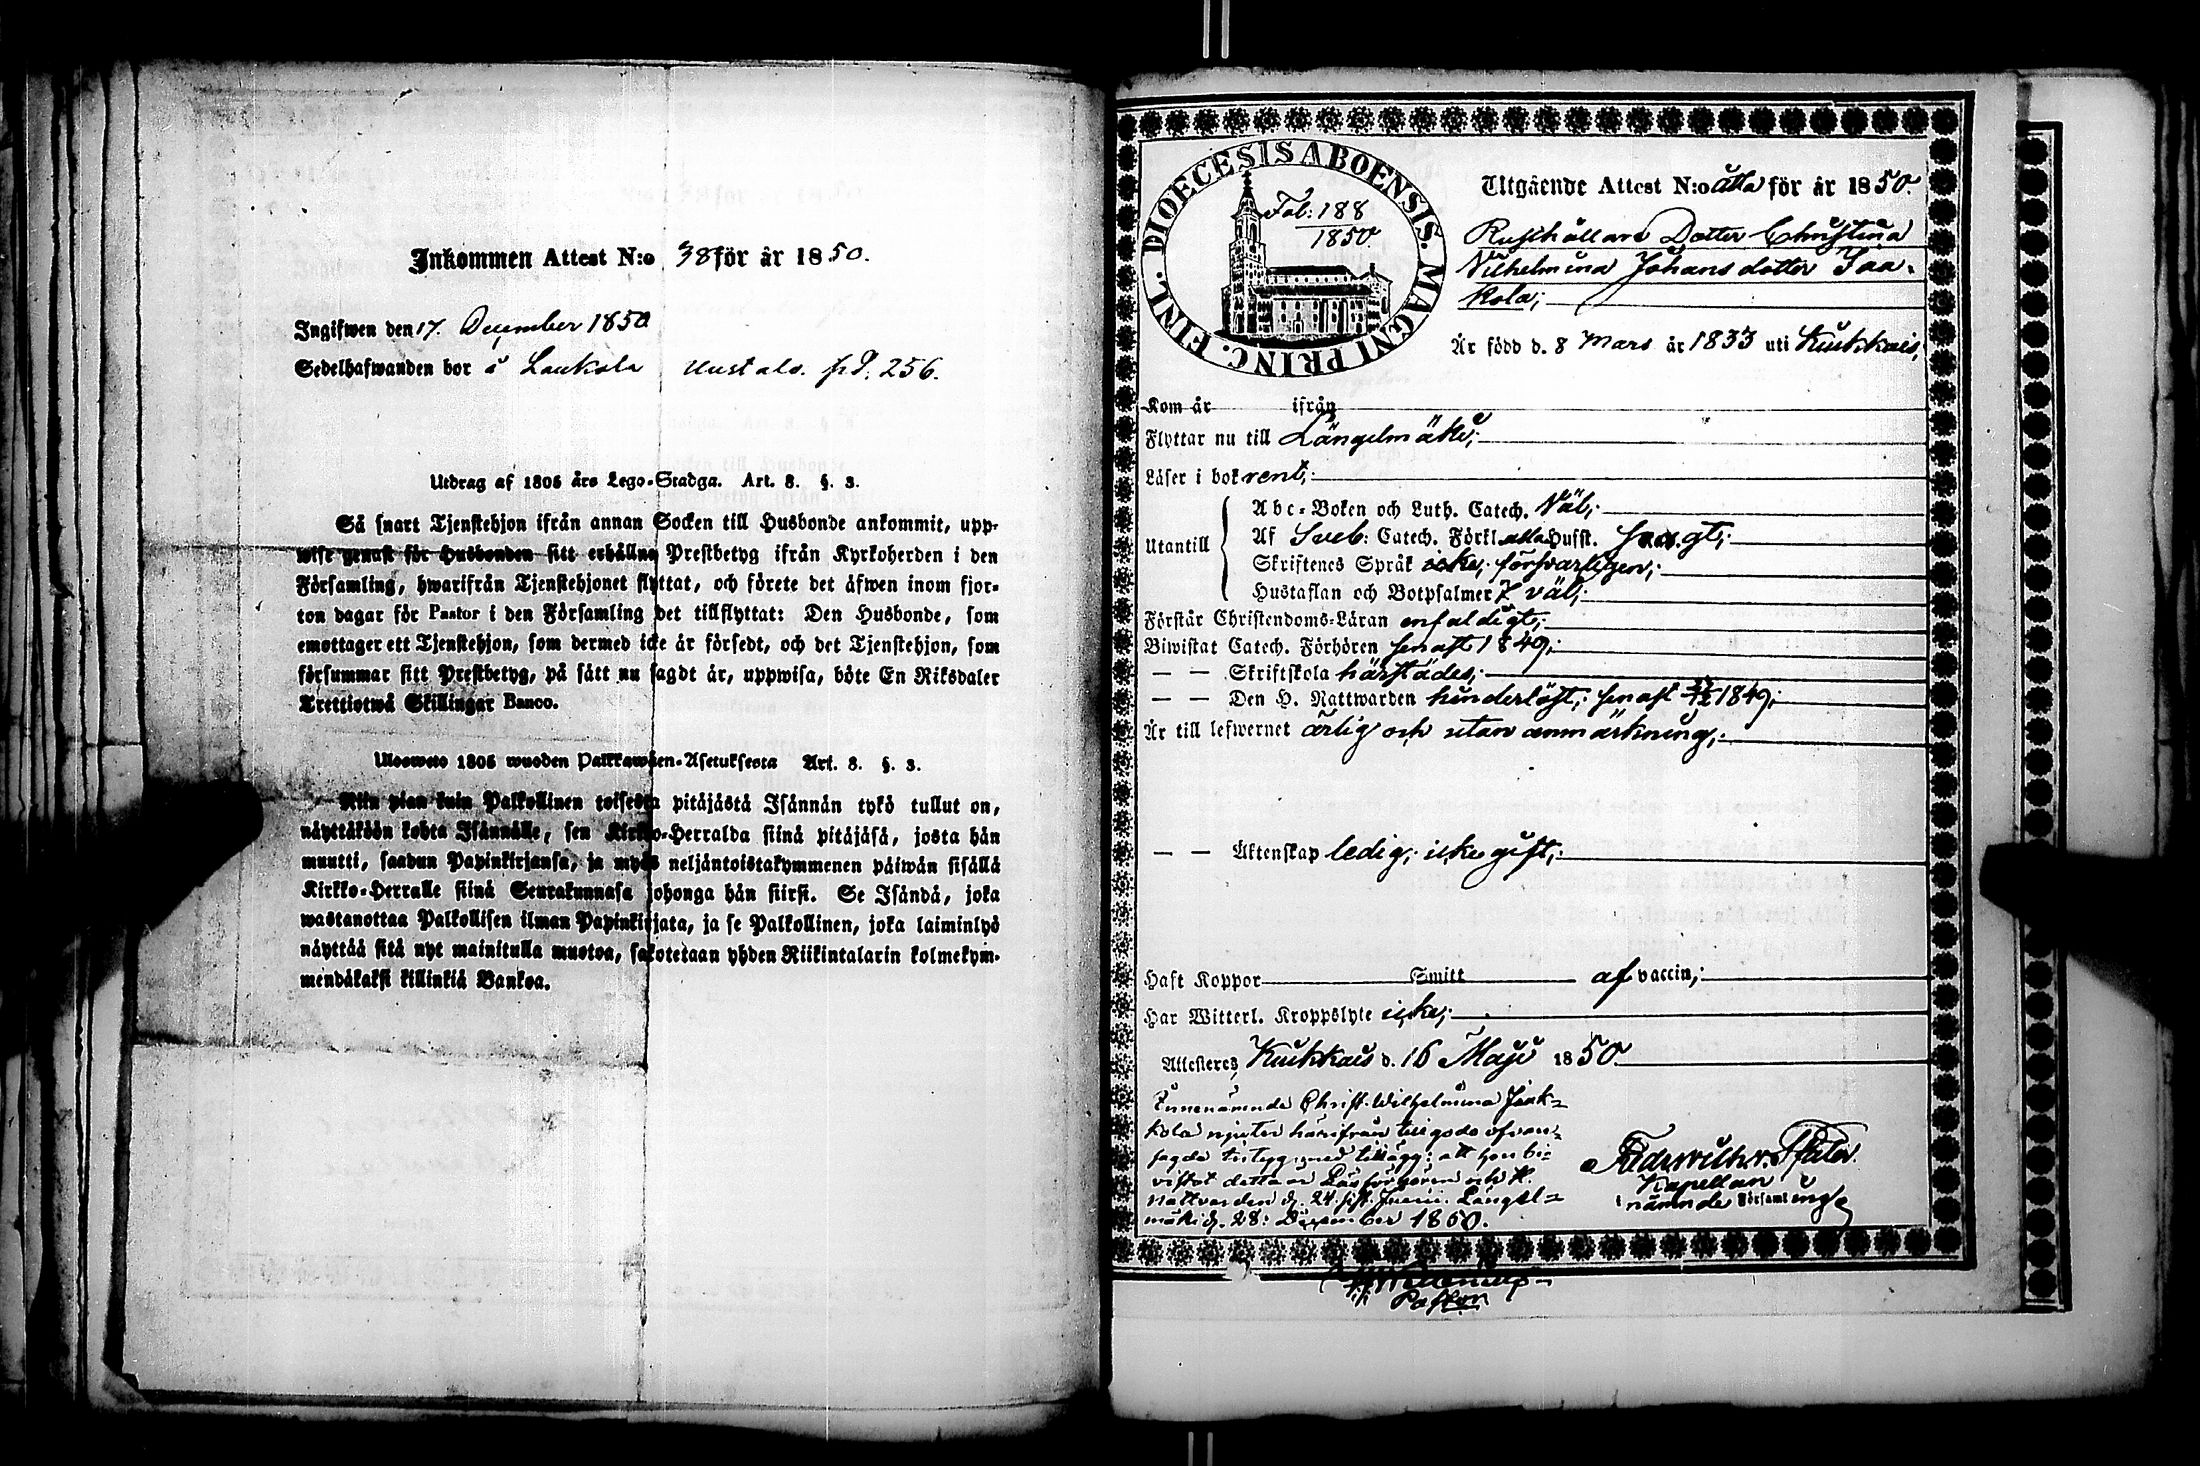 Inkommen Attest N:o 38 för år 1850.
Ingifwen den 17. December 1850
Sedelhafwanden bor å Laukola
Utdrag af 1805 års Lego-Stadga. Art. 8. §. 3.
Så snart Tjenstehjon ifrån annan Socken till Husbonde ankommit, upp-
wise genast för Husbonden sitt erhållna Prestbetyg ifrån Kyrkoherden i den
Församling, hwarifrån Tjenstehjonet flyttat, och förete det äfwen inom fjor-
ton dagar för Pastor i den Församling det tillflyttat: Den Husbonde, som
emottager ett Tjenstehjon, som dermed icke är försedt, och det Tjenstehjon, som
försummar sitt Prestbetyg, på sätt nu sagdt är, uppwisa, böte En Riksdaler
Trettiotwå Skillingar Banco.
Ulosweto 1805 wuoden Palkkawäen-Asetuksesta Art. 8. §. 3.
Niin pian kuin Palkollinen toisesta pitäjästä Isännän tykö tullut on,
näyttäköön kohta Isännälle, sen Kirkko-Herralda siinä pitäjäsä, josta hän
muutti, saadun Papinkirjansa, ja myös neljäntoistakymmenen päiwän sisällä
Kirkko-Herralle siinä Seurakunnasa johonga hän siirsi. Se Isändä, joka
wastanottaa Palkollisen ilman Papinkirjata, ja se Palkollinen, joka laiminlyö
näyttää sitä nyt mainitulla muotoa, sakotetaan yhden Riikintalarin kolmekym-
mendäkaksi killinkiä Bankoa.
DIOECESIS ABOENSIS. MAGNI PRINC. FINL.
Fol: 188
1850.
Utgående Attest N:o åtta för år 1850.
Rusthållare Dotter Christina
Vilhelmina Johansdotter Jaa-
kola;
Är född d. 8 Mars år 1833 uti Kuhkois,
Kom år ifrån
Flyttar nu till Längelmäki;
Läser i bok rent;
Utantill
Abc-Boken och Luth. Catech. Väl;
Af Sveb: Catech. Förkl. alla Hufst. svagt;
Skriftenes Språk icke; försvarligen;
Hustaflan och Botpsalmer 7 väl;
Förstår Christendoms-Läran enfaldigt;
Biwistat Catech. Förhören senast 1849;
— — Skriftskola härstädes;
— — Den H. Nattwarden hinderlöst; senast 1849;
Är till lefwernet ärlig och utan anmärkning;
— — Äktenskap ledig; icke gift;
Haft Koppor Smitt af vaccin;
Har Witterl. Kroppslyte icke;
Attesteres, Kuhkois d. 16 Maji 1850
Innenämnde Christ. Wilhelmina Jaak-
kola njuter härifrån till godo ofvan-
sagde betyg med tillägg: att hon bi-
vistat detta år Läsförhören och H.
Nattvarden d. 24. sist. Junii. Längel-
mäki d. 28: December 1850.
Kapellan
i nämnde Församling
Pastor